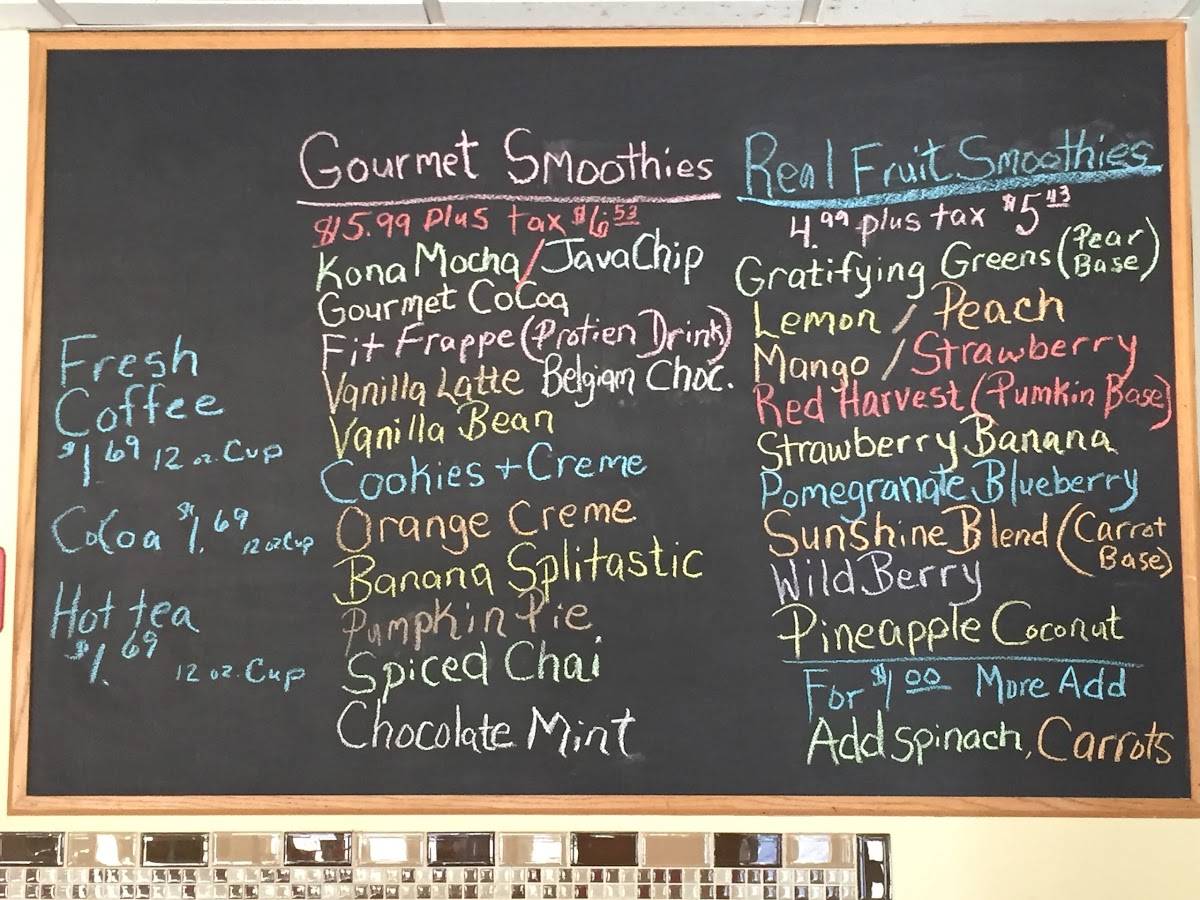 Fresh
Coffee
$1.69 12 oz. Cup
CoCoa $1.69 12 oz Cup
Hot tea
$1.69 12 oz. Cup
Gourmet Smoothies
$5.99 plus tax $6.53
Kona Mocha/JavaChip
Gourmet CoCoa
Fit Frappe (Protien Drink)
Vanilla Latte Belgian Choc.
Vanilla Bean
Cookies + Creme
Orange Creme
Banana Splitastic
Pumpkin Pie
Spiced Chai
Chocolate Mint
Real Fruit Smoothies
4.99 plus tax $5.43
Gratifying Greens (Pear Base)
Lemon / Peach
Mango / Strawberry
Red Harvest (Pumkin Base)
Strawberry Banana
Pomegranate Blueberry
Sunshine Blend (Carrot Base)
Wild Berry
Pineapple Coconut
For $1.00 More Add
Add spinach, Carrots